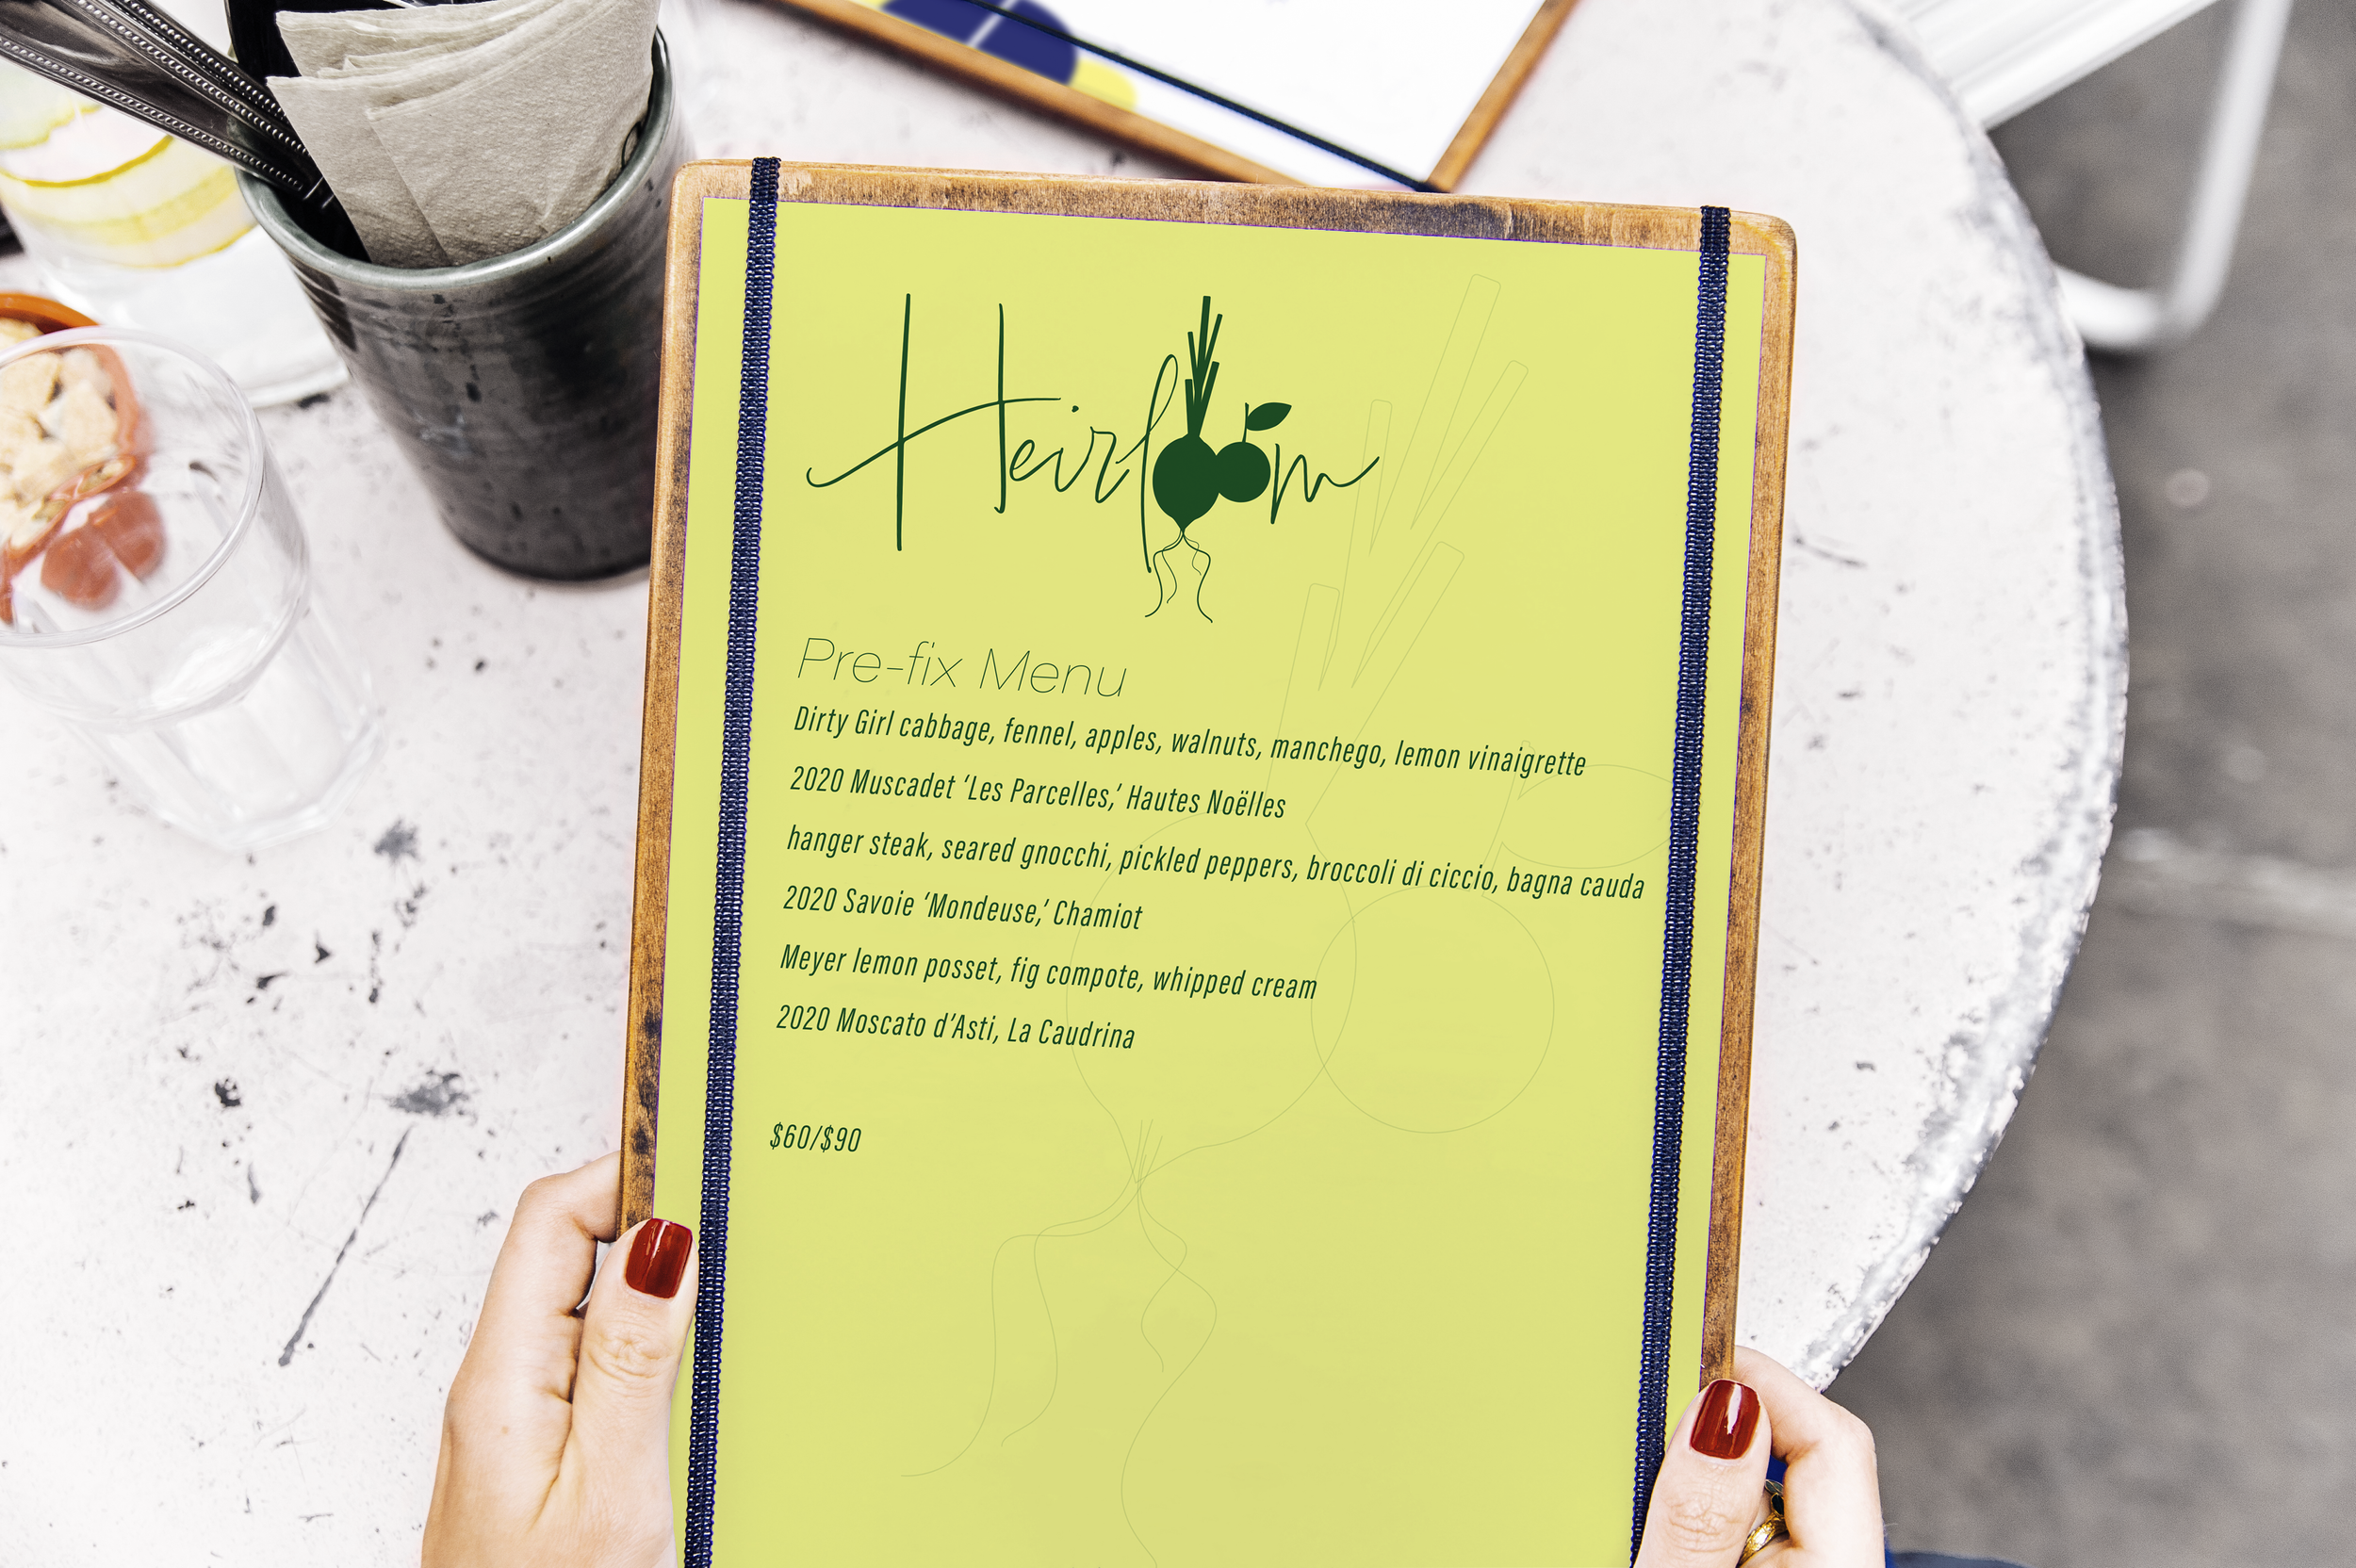 Heirloom
Pre-fix Menu
Dirty Girl cabbage, fennel, apples, walnuts, manchego, lemon vinaigrette
2020 Muscadet ‘Les Parcelles,’ Hautes Noëlles
hanger steak, seared gnocchi, pickled peppers, broccoli di ciccio, bagna cauda
2020 Savoie ‘Mondeuse,’ Chamiot
Meyer lemon posset, fig compote, whipped cream
2020 Moscato d’Asti, La Caudrina
$60/$90